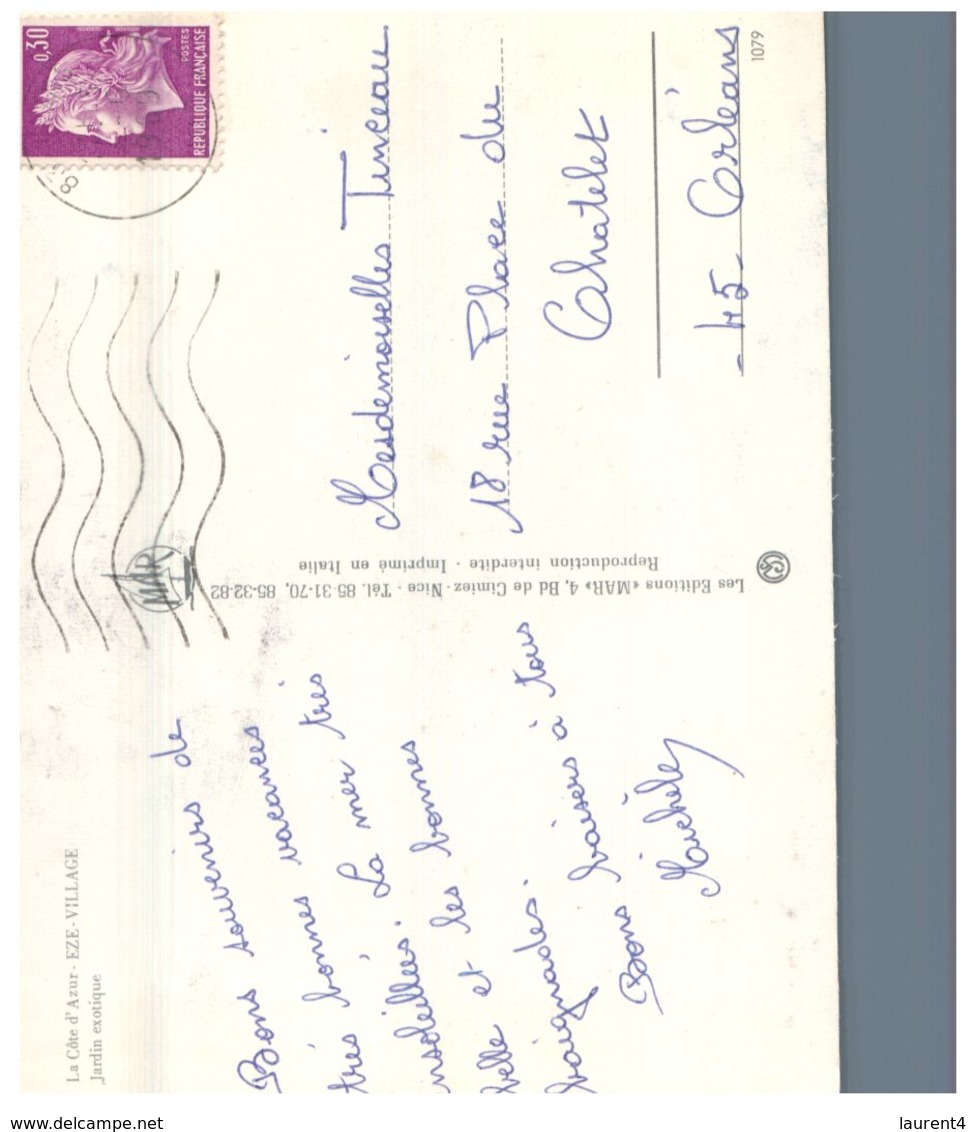 La Côte d'Azur - EZE - VILLAGE
Jardin exotique
Bons souvenirs de
très bonnes vacances
très bonnes vacances très
ensoleillées. La mer très
belle et les bonnes
baignades.
Bons baisers à tous
Michèle
Les Editions «MAR» 4, Bd de Cimiez - Nice - Tél. 85-31-70, 85-32-82
Reproduction interdite - Imprimé en Italie
MAR
0,30
POSTES
REPUBLIQUE FRANÇAISE
Mesdemoiselles Tinceau
18 rue Place du
Chatelet
-45- Orléans
1079
www.delcampe.net
laurent4